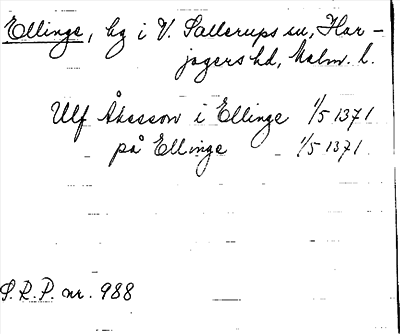 Ellinge, hg i V. Sallerups sn, Har-
jagers hd, Malm. l.
Ulf Åkesson i Ellinge 1/5 1371
på Ellinge 1/5 1371
S.R.P. nr. 988